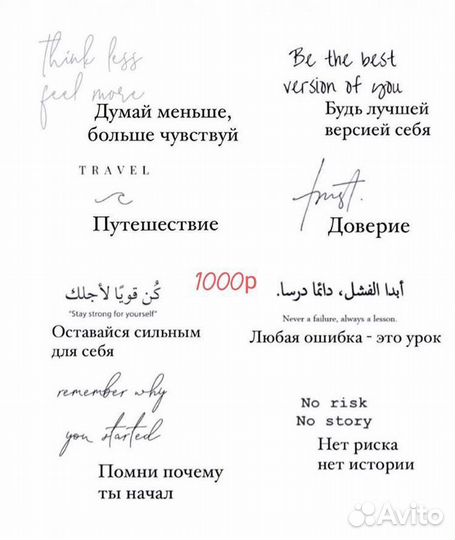 think less
feel more
Думай меньше,
больше чувствуй
Be the best
version of you
Будь лучшей
версией себя
TRAVEL
Путешествие
trust.
Доверие
1000р
كُن قويًا لأجلك
"Stay strong for yourself"
Оставайся сильным
для себя
أبدا الفشل، دائمًا درسا.
Never a failure, always a lesson.
Любая ошибка - это урок
remember why
you started
Помни почему
ты начал
No risk
No story
Нет риска
нет истории
Avito